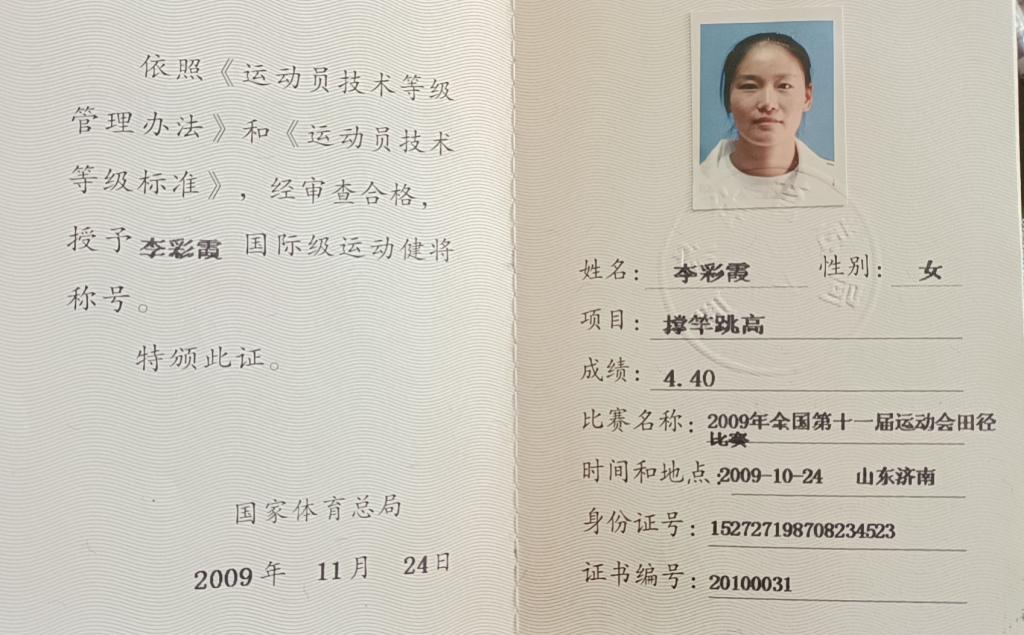 依照《运动员技术等级
管理办法》和《运动员技术
等级标准》，经审查合格，
授予 李彩霞 国际级运动健将
称号。
特颁此证。
国家体育总局
2009 年 11 月 24 日
姓名： 李彩霞 性别： 女
项目： 撑竿跳高
成绩： 4.40
比赛名称： 2009年全国第十一届运动会田径
比赛
时间和地点： 2009-10-24 山东济南
身份证号： 152727198708234523
证书编号： 20100031